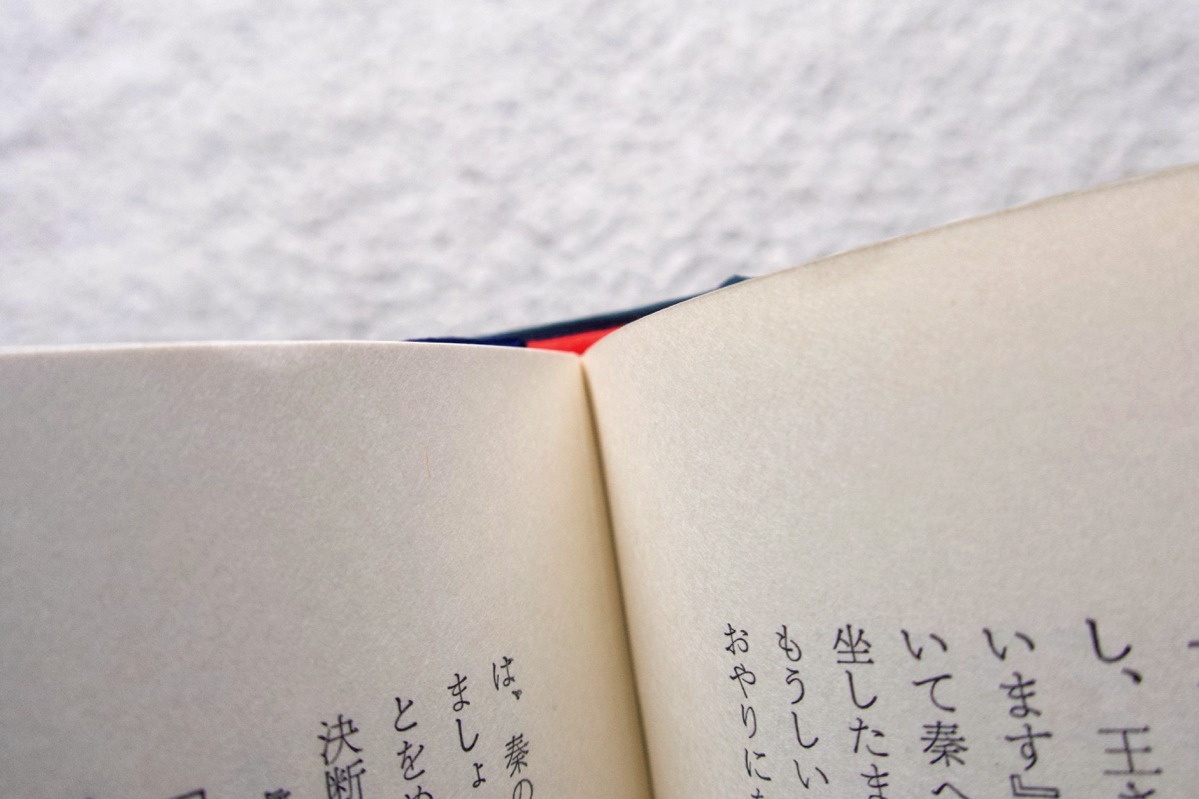 し、王
います』
いて秦へ
坐したま
もうしい
おやりに
は、秦の
ましょ
とをめ
決断